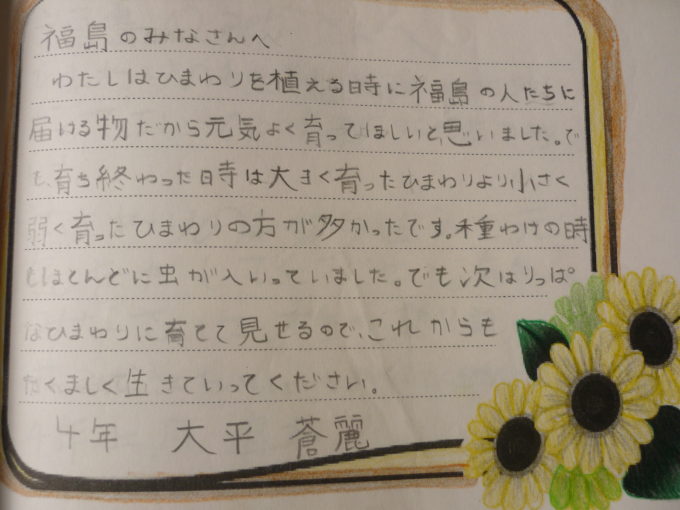 福島のみなさんへ
わたしはひまわりを植える時に福島の人たちに
届ける物だから元気よく育ってほしいと思いました。で
も、育ち終わった時は大きく育ったひまわりより小さく
弱く育ったひまわりの方が多かったです。種わけの時
もほとんどに虫が入いっていました。でも次はりっぱ
なひまわりに育てて見せるので、これからも
たくましく生きていってください。
4年 大平 蒼麗